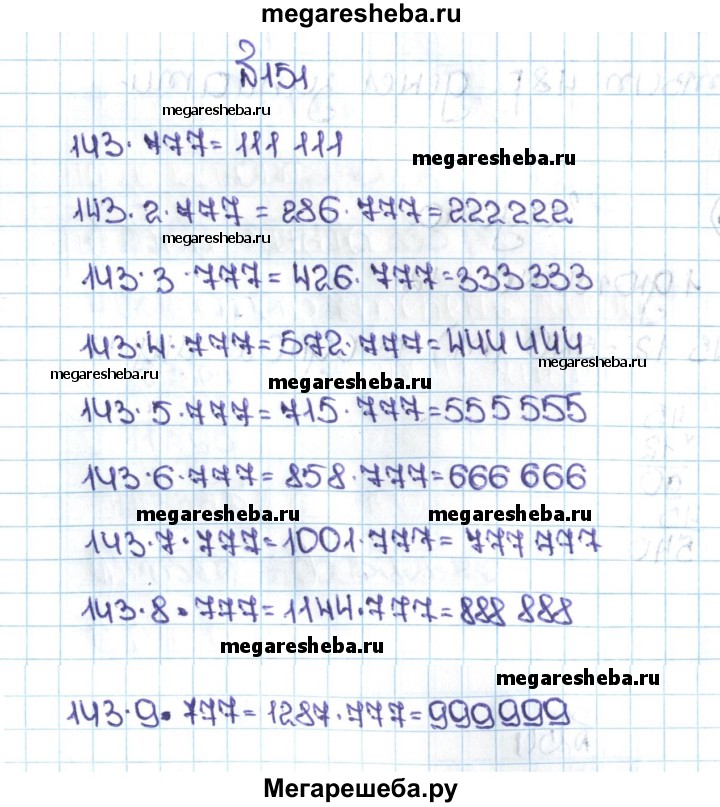 megaresheba.ru
№151
megaresheba.ru
143·777=111 111
megaresheba.ru
143·2·777=286·777=222222
megaresheba.ru
143·3·777=426·777=333333
143·4·777=572·777=444 444
megaresheba.ru
megaresheba.ru
megaresheba.ru
143·5·777=715·777=555555
143·6·777=858·777=666 666
megaresheba.ru megaresheba.ru
143·7·777=1001·777=777 777
143·8·777=1144·777=888 888
megaresheba.ru
megaresheba.ru
143·9·777=1287·777=999999
Мегарешеба.ру